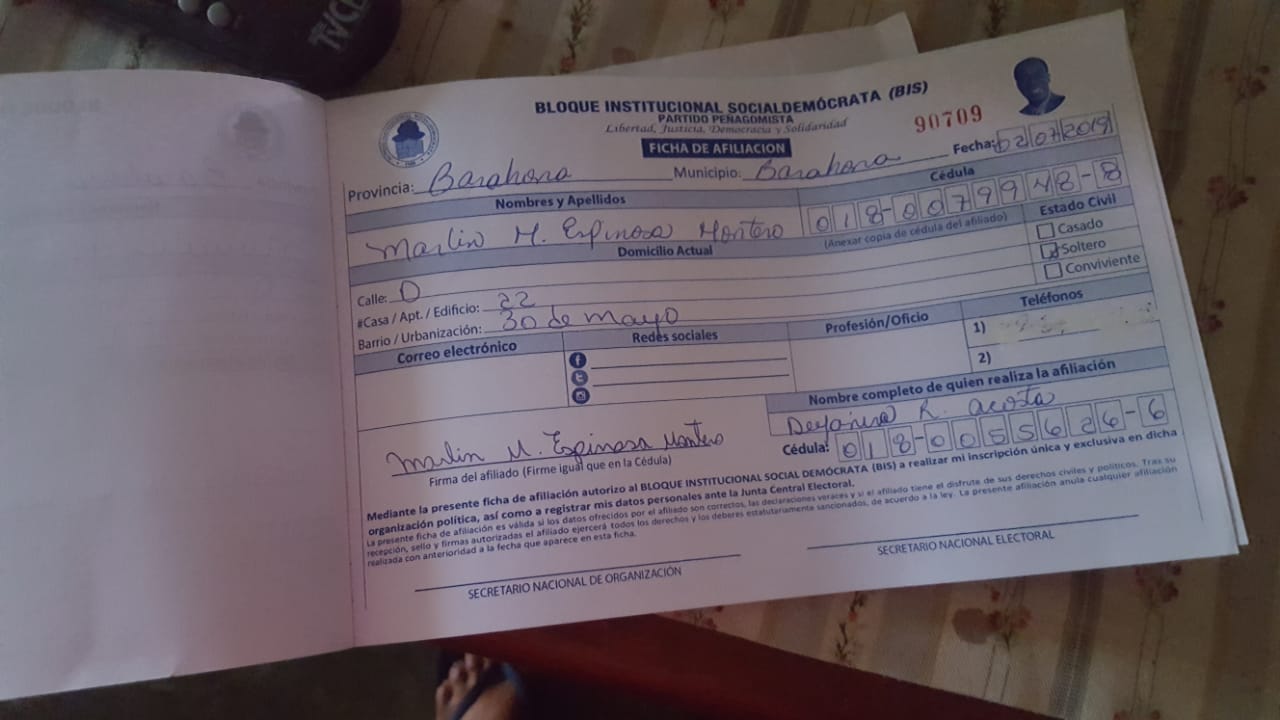 TVCE
BLOQUE INSTITUCIONAL SOCIALDEMÓCRATA (BIS)
PARTIDO PEÑAGOMISTA
Libertad, Justicia, Democracia y Solidaridad
90709
FICHA DE AFILIACION
Fecha: 02/07/2019
Provincia: Barahona Municipio: Barahona
Nombres y Apellidos Cédula
Marlin M. Espinosa Montero 018-0079948-8
(Anexar copia de cédula del afiliado)
Estado Civil
Casado
Soltero
Conviviente
Domicilio Actual
Calle: D
#Casa / Apt. / Edificio: 22
Barrio / Urbanización: 30 de mayo
Correo electrónico Redes sociales Profesión/Oficio Teléfonos
1)
2)
Nombre completo de quien realiza la afiliación
R. acosta
Cédula: 018-0055626-6
Marlin M. Espinosa Montero
Firma del afiliado (Firme igual que en la Cédula)
Mediante la presente ficha de afiliación autorizo al BLOQUE INSTITUCIONAL SOCIAL DEMÓCRATA (BIS) a realizar mi inscripción única y exclusiva en dicha
organización política, así como a registrar mis datos personales ante la Junta Central Electoral.
La presente ficha de afiliación es válida si los datos ofrecidos por el afiliado son correctos, las declaraciones veraces y si el afiliado tiene el disfrute de sus derechos civiles y políticos. Tras su
recepción, sello y firmas autorizadas el afiliado ejercerá todos los derechos y los deberes estatutariamente sancionados, de acuerdo a la ley. La presente afiliación anula cualquier afiliación
realizada con anterioridad a la fecha que aparece en esta ficha.
SECRETARIO NACIONAL DE ORGANIZACIÓN SECRETARIO NACIONAL ELECTORAL